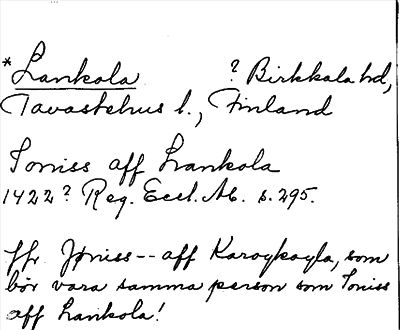 *Lankola ? Birkkala hd,
Tavastehus l., Finland
Joniss aff Lankola
1422? Reg. Eccl. Ab. s. 295.
Jfr Jøniss -- aff Karoykoyla, som
bör vara samma person som Joniss
aff Lankola!